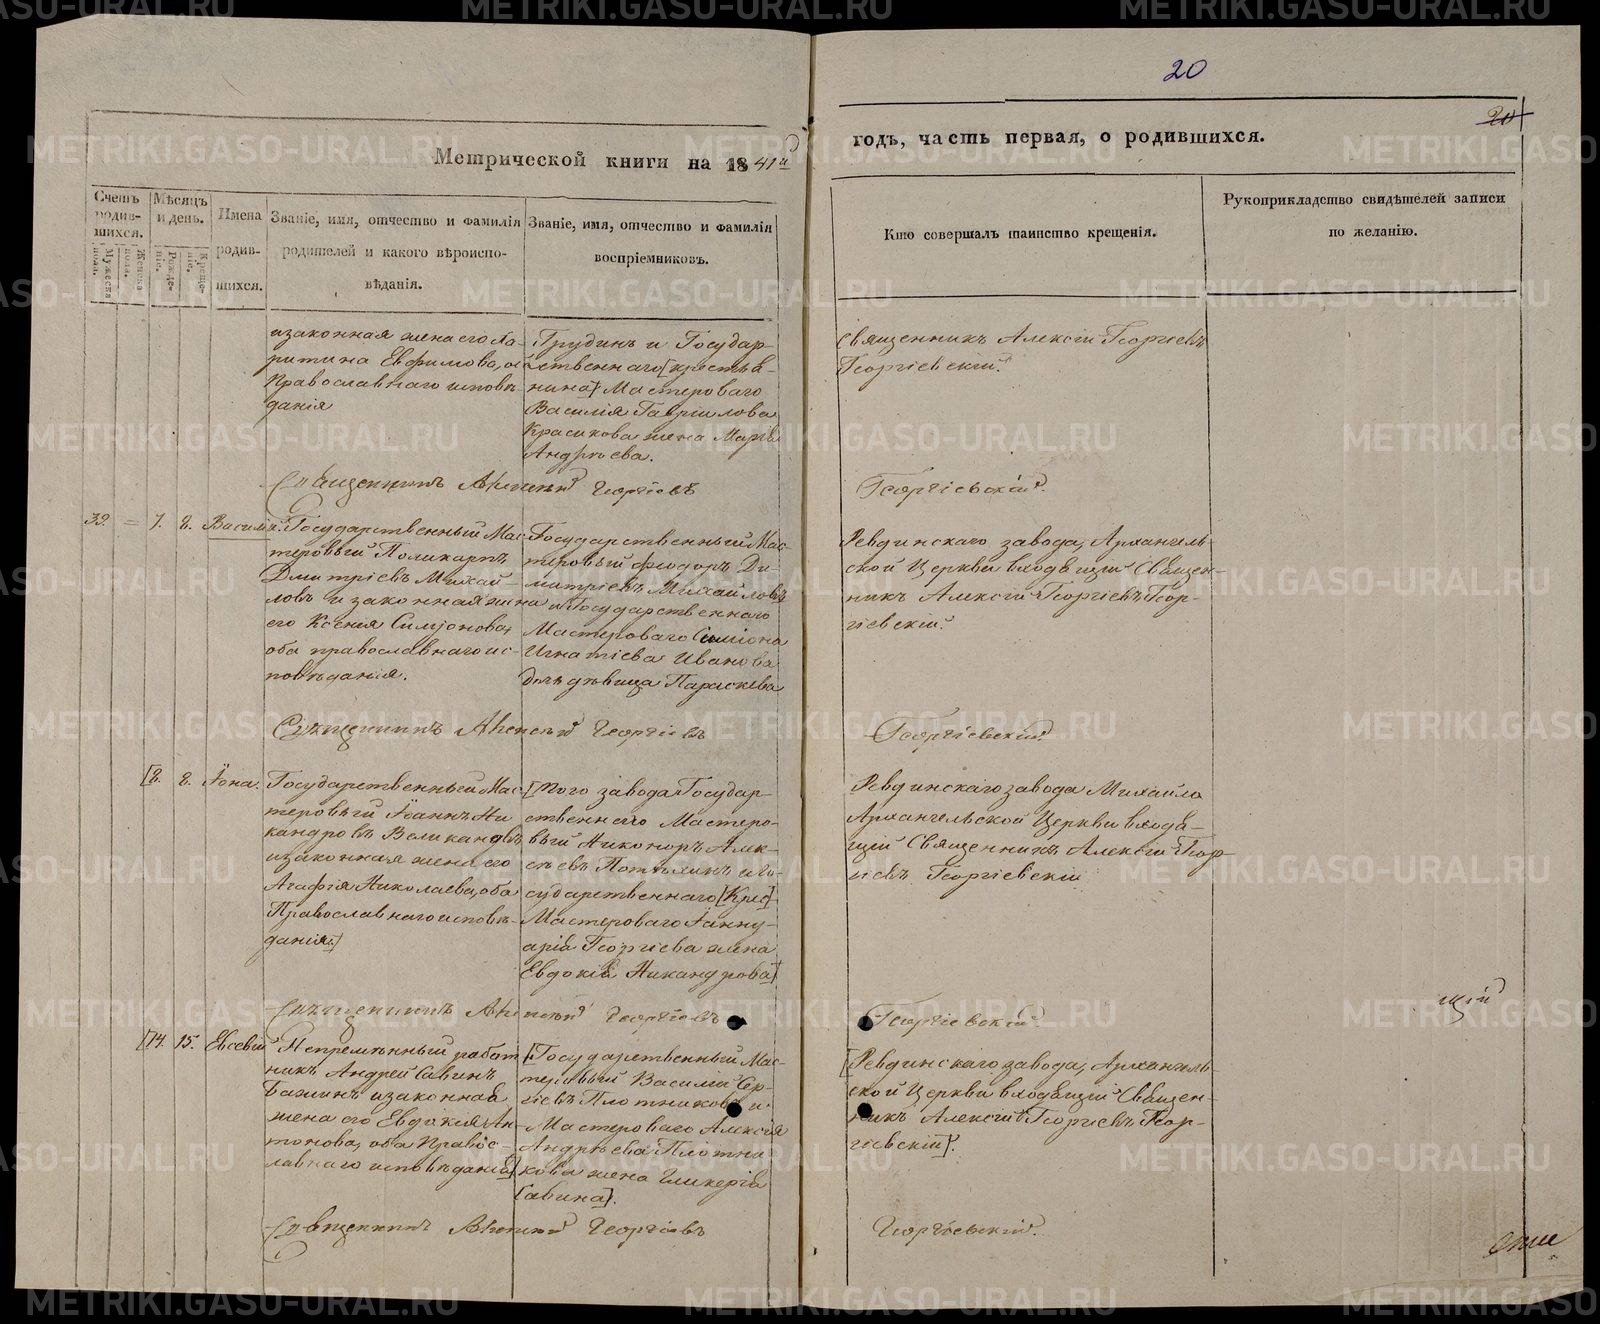 20
20
Метрической книги на 1841й
годъ, часть первая, о родившихся.
Счетъ родив-шихся.
Мужеска пола.
Женска пола.
Мѣсяцъ и день.
Рожде-ніе.
Креще-ніе.
Имена родив-шихся.
Званіе, имя, отчество и фамилія
родителей и какого вѣроиспо-
вѣданія.
Званіе, имя, отчество и фамилія
воспріемниковъ.
Кто совершалъ таинство крещенія.
Рукоприкладство свидѣтелей записи
по желанію.
изаконная жена его Ха-
ритина Евфимова, оба
Православнаго исповѣ-
данія
Грудинъ и Государ-
ственнаго [крестья-
нина] Мастероваго
Василія Гавриилова
Красикова жена Марія
Андреева.
Священникъ Алексій Георгіевъ
Георгіевскій.
Священникъ Алексій Георгіевъ
Георгіевскій.
39. = 7. 8. Василій.
Государственный Мас-
теровый Поликарпъ
Дмитріевъ Михай-
ловъ и законная жена
его Ксенія Симіонова,
оба православнаго ис-
повѣданія.
Государственный Мас-
теровый Феодоръ Ди-
митріевъ Михайловъ
и Государственнаго
Мастероваго Симіона
Игнатіева Иванова
дочь дѣвица Параскева
Ревдинскаго завода, Архангель-
ской Церкви входящій Священ-
никъ Алексій Георгіевъ Геор-
гіевскій.
Священникъ Алексій Георгіевъ
Георгіевскій
[8. 8. Іона.
Государственный Мас-
теровый Іоаннъ Ни
кандровъ Великановъ
изаконная жена его
Агафія Николаева, оба
Православнаго исповѣ-
данія.]
[Того завода Государ-
ственнаго Мастеро-
вый Никоноръ Алек-
сѣевъ Потѣхинъ и Го-
сударственнаго [Крес]
Мастероваго Іанну-
арія Георгіева жена
Евдокія Никандрова]
Ревдинскаго завода Михаило
Архангельской Церкви входя-
щій Священникъ Алексій Геор-
гіевъ Георгіевскій
Священникъ Алексій Георгіевъ
Георгіевскій.
щій
[14. 15. Евсевій
Непремѣнный работ
никъ Андрей Савинъ
Бажинъ изаконная
жена его Евдокія Ан-
тонова, оба Правос-
лавнаго исповѣданія]
[Государственный Мас-
теровый Василій Сер-
гіевъ Плотниковъ и
Мастероваго Алексія
Андрѣева Плотни
кова жена Гликерія
Савина].
[Ревдинскаго завода, Архангель-
ской Церкви входящій Священ-
никъ Алексій Георгіевъ Геор-
гіевскій].
Священникъ Алексій Георгіевъ
Георгіевскій.
METRIKI.GASO-URAL.RU